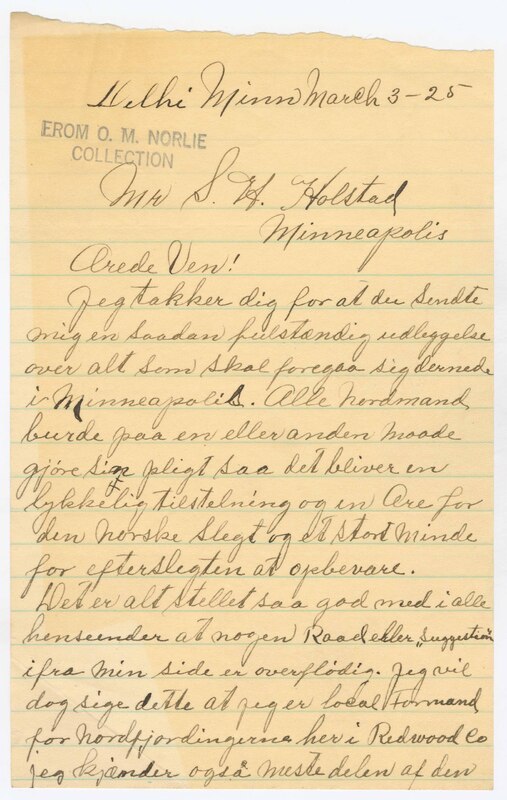 Delhi Minn March 3-25
FROM O. M. NORLIE
COLLECTION
Mr S. H. Holstad
Minneapolis
Ærede Ven!
Jeg takker dig for at du sendte
mig en saadan fulstændig udleggelse
over alt som skal foregaa sig dernede
i Minneapolis. Alle Nordmænd
burde paa en eller anden maade
gjöre sin pligt saa det bliver en
lykkelig tilstelning og en Ære for
den norske slegt og et stort minde
for efterslegten at opbevare.
Det er alt stellet saa god med i alle
henseender at nogen Raad eller "suggestion"
ifra min side er overflödig. Jeg vil
dog sige dette at jeg er local Formand
for Nordfjordingerne her i Redwood Co
jeg kjænder også meste delen af den